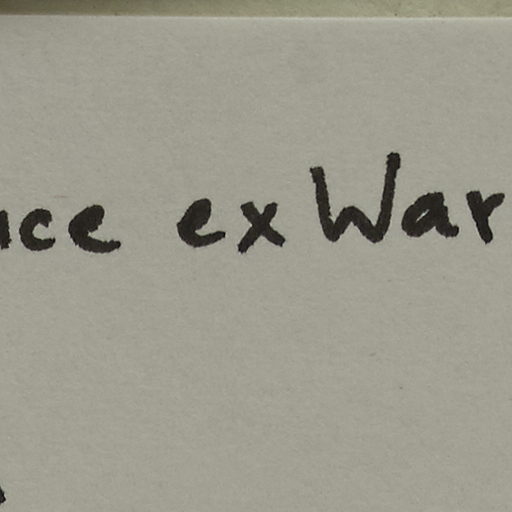 ce ex War